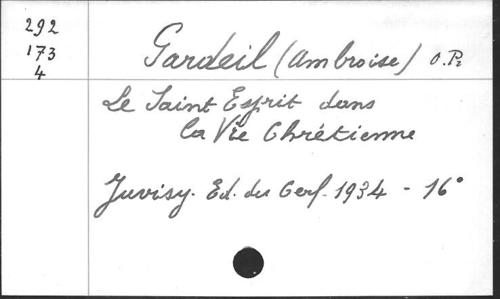 292
173
4
Gardeil (Ambroise) O.P.
Le Saint Esprit dans
la Vie Chrétienne
Juvisy. Ed. du Cerf. 1934 - 16°